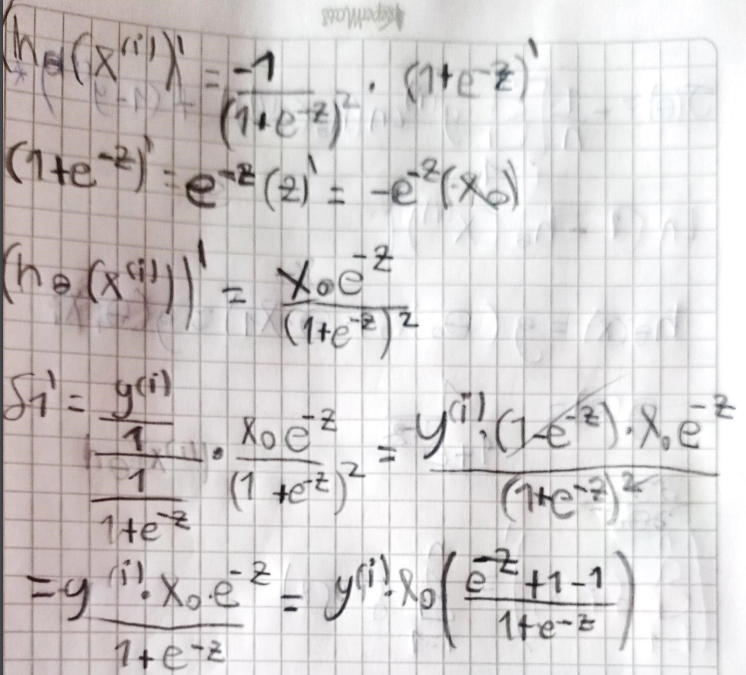 (h_θ(x^(i)))' = -1/(1+e^-z)^2 · (1+e^-z)'
(1+e^-z)' = e^-z (z)' = -e^-z(x_0)
(h_θ(x^(i)))' = x_0e^-z/(1+e^-z)^2
δ1' = (y^(i)/1)/(1/(1+e^-z)) · x_0e^-z/(1+e^-z)^2 = y^(i)·(1-e^-z)·x_0e^-z/(1+e^-z)^2
= y^(i)·x_0·e^-z/(1+e^-z) = y^(i)·x_0((e^-z+1-1)/(1+e^-z))